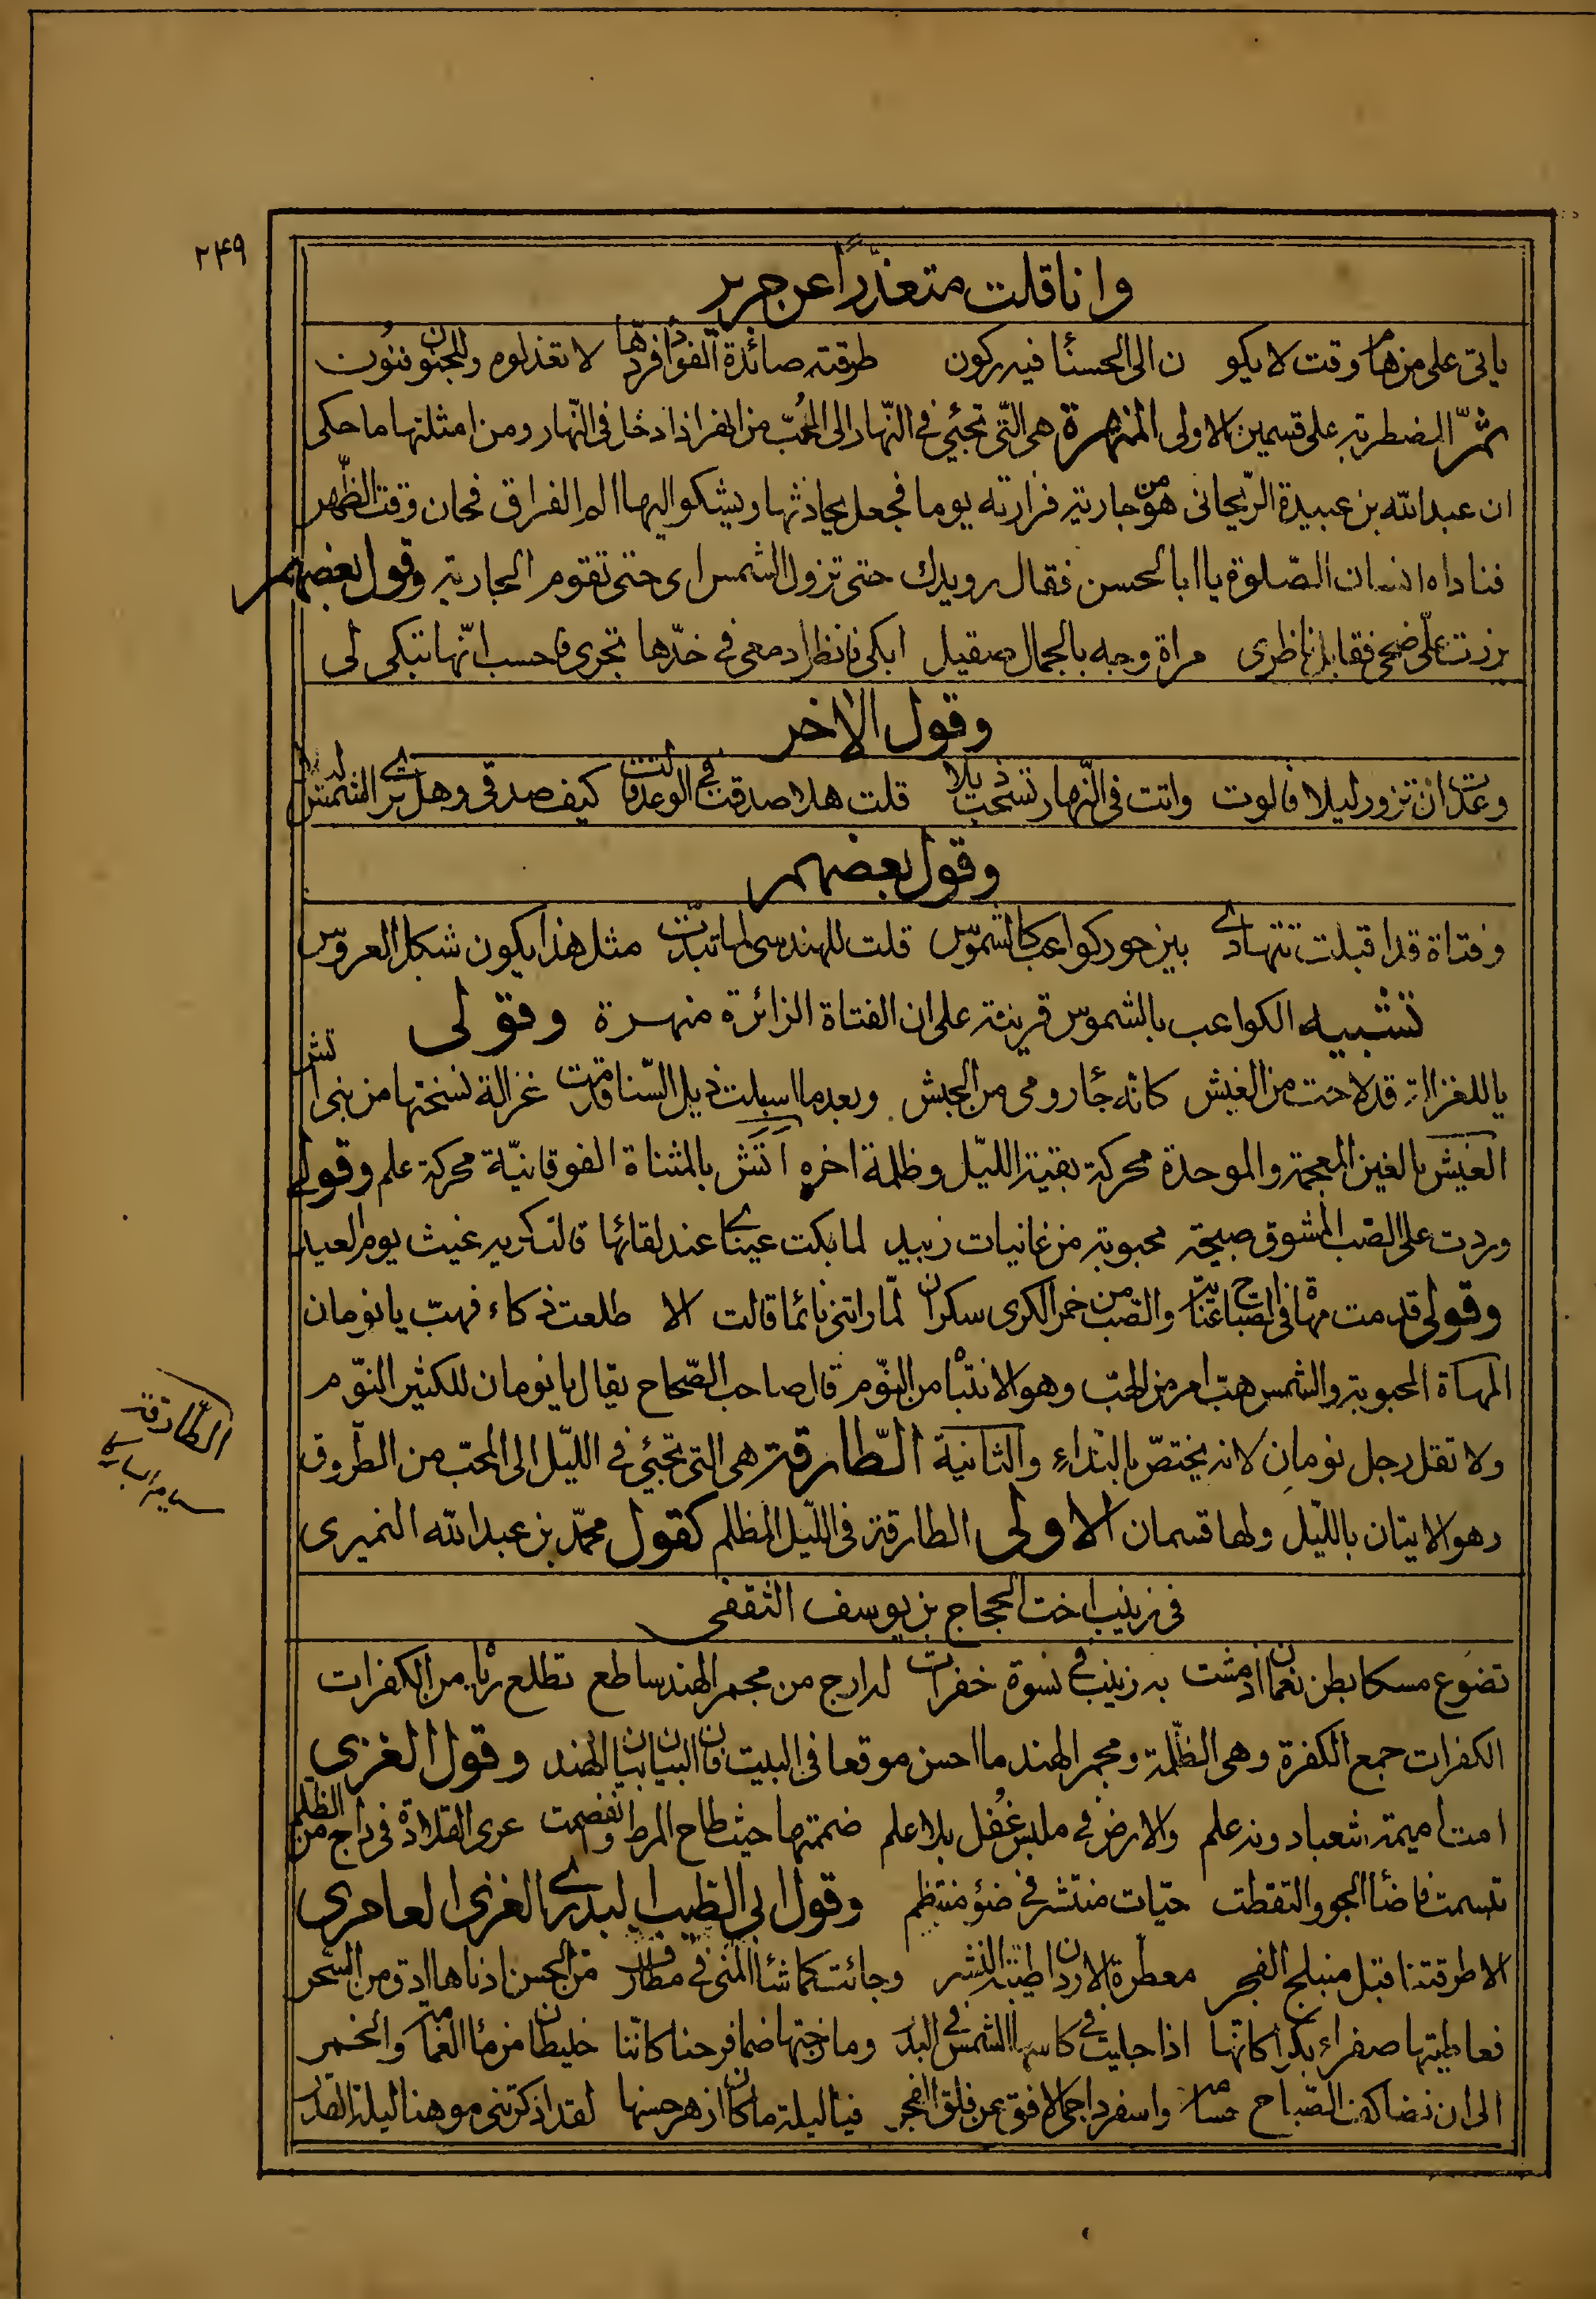 ٢٤٩
وانا قلت متعذّرًا عن جرير
ياتى على من هام وقت لا يكو ن الى الحسنا فيه ركون طرقته صائدة الفؤاد فردّها لا تعذلوه وللجنون فنون
ثمّ المضطربة على قسمين الاولى المنهرة هى التّى تجئي فى النّهار الى المحُبّ من انهر اذا دخل فى النّهار ومن امثلتها ما حكى
ان عبد الله بن عبيدة الرّيحانى هوى جارية فزارته يوما فجعل يحادثها ويشكو اليها الم الفراق فحان وقت الظّهر
فناداه انسان الصّلوة يا ابا الحسن فقال رويدك حتى تزول الشمس اى حتى تقوم الجارية وقول بعضهم
برزت علىّ ضحى فقابل ناظرى مراة وجه بالجمال صقيل ابكى فانظر ادمعى فى خدّها تجرى فاحسب انّها تبكى لى
وقول الاخر
وعدت ان تزور ليلا فالوت واتت فى النّهار تسحب ذيلا قلت هلا صدقت فى الوعد قالت كيف صدقى وهل ترى الشمس ليلا
وقول بعضهم
وفتاة قد اقبلت تتهادى بين حور كواعب كالشموس قلت للهندسى لما تبدّت مثل هذا يكون شكل العروس
تشبيه الكواعب بالشموس قرينة على ان الفتاة الزائرة منهرة وقولى
يا للغزالة قد لاحت من الغبش كانه جأ رومى من الحبش وبعد ما اسبلت ذيل السّنا قدمت غزالة نسختها من بنى اتش
الغبش بالغين المعجمة والموحدة محركة بقية اللّيل وظلمة اخره اتش بالمثناة الفوقانيّة محركة علم وقولى
وردت على الصّب المشوق صبيحة محبوبة من غانيات زبيد لما بكت عيناى عند لقائها قالت كريه غيث يوم العيد
وقولى قدمت مهاة فى الصّباح عناية والصّب من خمر الكرى سكران لمّا راتنى نائما قالت الا طلعت ذكاء فهبّ يا نومان
المهاة المحبوبة والشمس هب امر من الهب وهو الانتباه من النّوم قال صاحب الصّحاح يقال يا نومان للكثير النّوم
ولا تقل رجل نومان لانه يختصّ بالنّداء والثانية الطّارقة هى التى تجئي فى اللّيل الى المحب من الطّروق
وهو الاتيان باللّيل ولها قسمان الاولى الطارقة فى اللّيل المظلم كقول محمّد بن عبد الله النميرى
فى زينب اخت الحجاج بن يوسف الثقفى
تضوع مسكا بطن نعمان اذ مشت به زينب فى نسوة خفرات له ارج من مجمر الهند ساطع تطلع رياه من الكفرات
الكفرات جمع الكفرة وهى الظّلمة ومجمر الهند ما احسن موقعا فى البيت فان البيان بيان الهند وقول الغزى
امت اميمة شعبا دونه علم والارض فى ملبس غُفل بلا علم ضممتها حيث طاح المرط وانفصمت عرى القلادة فى داج من الظلم
تبسمت فاضأ الجو والتقطت حبّات منتثر فى ضوء منتظم وقول ابى الطّيب البدرى الغزى العامرى
الا طرقتنا قبل منبلج الفجر معطرة الاردان طيّبة النّشر وجائت كما شأ المنى فى مطارف من الحسن اذناها ادق من السّحر
فعاطيتها صفراء بكرا كانّها اذا جليت فى كاسها الشمس فى البدر ومازجتها ضما فرحنا كانّنا خليطان من مأ الغمامة والخمر
الى ان نضا كف الصّباح حسامه واسفر داجى الافق عن فلق الفجر فيا ليلة ما كان ازهر حسنها لقد اذكرتنى موهنا ليلة القدر
الطّارقة